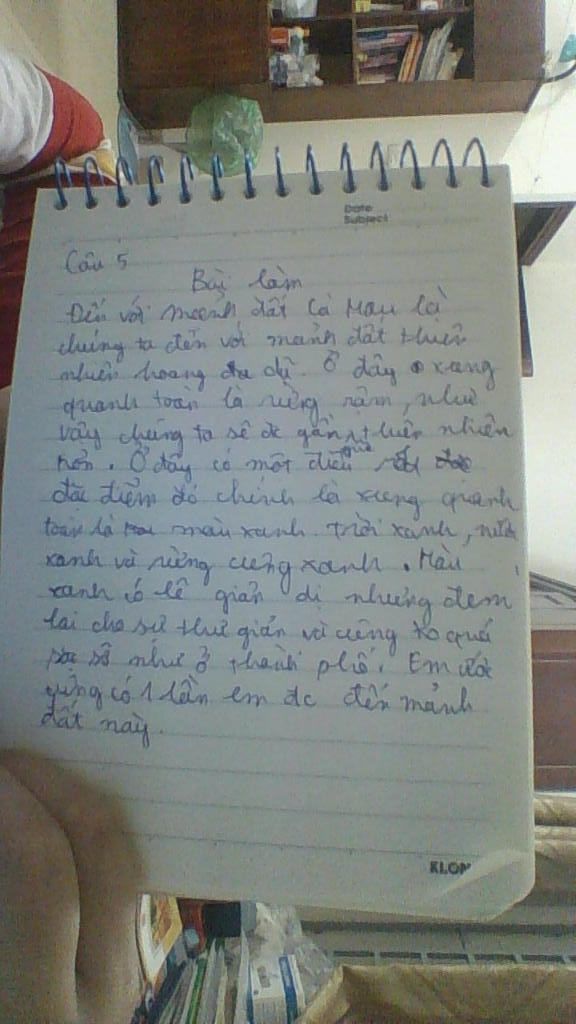 Date
Subject
Câu 5
Bài làm
Đến với mảnh đất Cà Mau là
chúng ta đến với mảnh đất thiên
nhiên hoang dã. Ở đây xung
quanh toàn là rừng rậm, như
vậy chúng ta sẽ đc gần thiên nhiên
hơn. Ở đây có một điều
đặc điểm đó chính là xung quanh
toàn là màu xanh. Trời xanh, nước
xanh và rừng cũng xanh. Màu
xanh có lẽ giản dị nhưng đem
lại cho sự thư giãn và cũng ko quá
số như ở thành phố. Em ước
có 1 lần em đc đến mảnh
đất này.
KLON